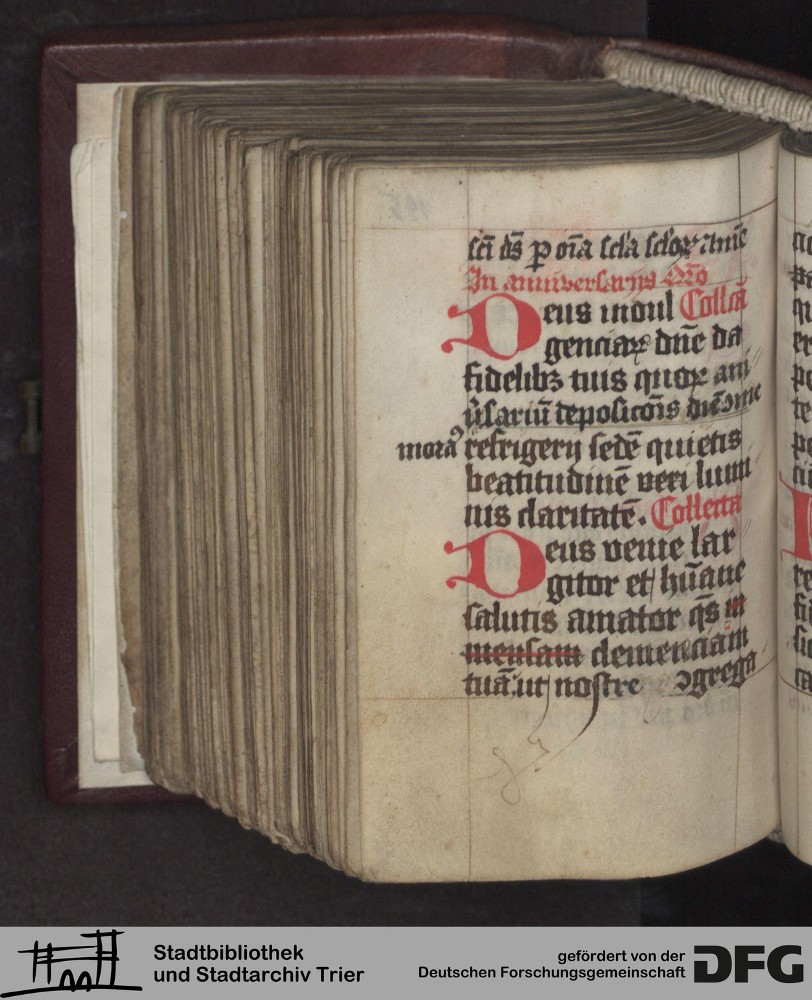 sci ds p oīa scla sclo4 Amē
In anniversarijs Collcā
Deus indul
gencia4 dn̄e da
fidelibꝫ tuis quo4 ani
ūsariū deposicōis
moraꝰ refrigerij sedē quietis
beatitudinē veri lumi
nis claritatē. Collecta
Deus venie lar
gitor et hūane
salutis amator q̄s
mensam clemenciam
tuā. ut nostre ↄgrega
Stadtbibliothek
und Stadtarchiv Trier
gefördert von der
Deutschen Forschungsgemeinschaft
DFG